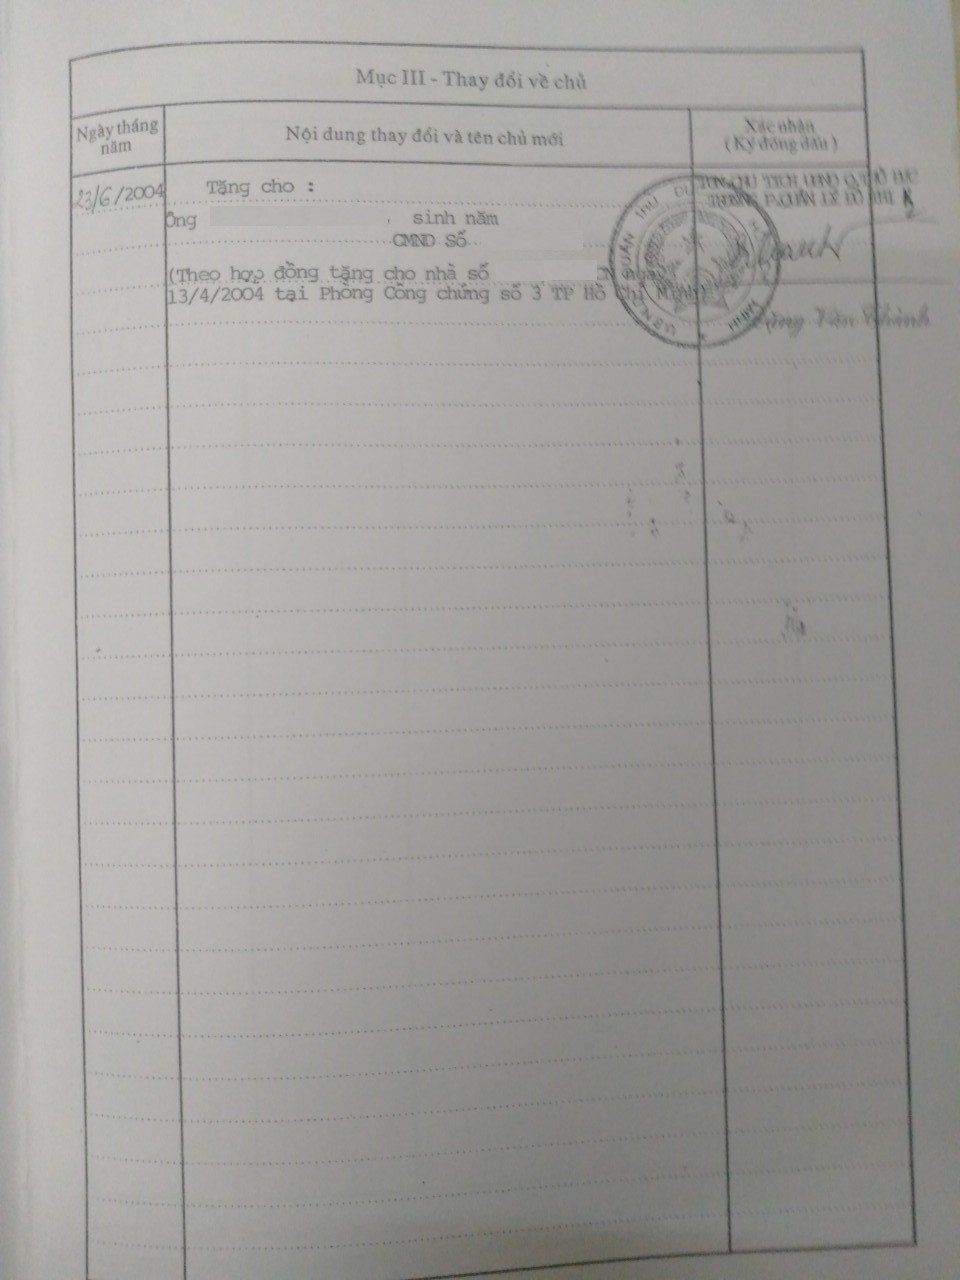 Mục III - Thay đổi về chủ
Ngày tháng năm
Nội dung thay đổi và tên chủ mới
Xác nhận
( Ký đóng dấu )
23/6/2004
Tặng cho :
Ông , sinh năm
CMND Số
(Theo hợp đồng tặng cho nhà số
13/4/2004 tại Phòng Công chứng số 3 TP Hồ Chí Minh)
Văn Thành